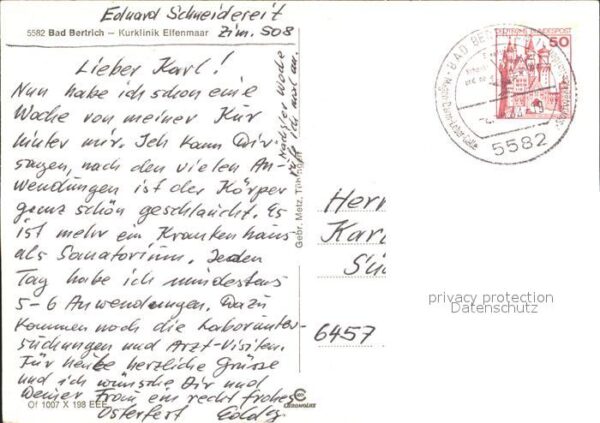 Eduard Schneidereit
5582 Bad Bertrich – Kurklinik Elfenmaar
Zim. 508
Lieber Karl!
Nun habe ich schon eine
Woche von meiner Kur
hinter mir. Ich kann Dir
sagen, nach den vielen An-
wendungen ist der Körper
ganz schön geschlaucht. Es
ist mehr ein Krankenhaus
als Sanatorium. Jeden
Tag habe ich mindestens
5-6 Anwendungen. Dazu
kommen noch die Laborunter-
suchungen und Arzt-Visiten.
Für heute herzliche Grüsse
und ich wünsche Dir und
Deiner Frau ein recht frohes
Osterfest
Of 1007 X 198 EEE
nächster Woche
ich
Gebr. Metz, Tübingen
CHROMOLUX
DEUTSCHE BUNDESPOST
50
BAD BE
5582
Herr
Kar
Sü
6457
privacy protection
Datenschutz